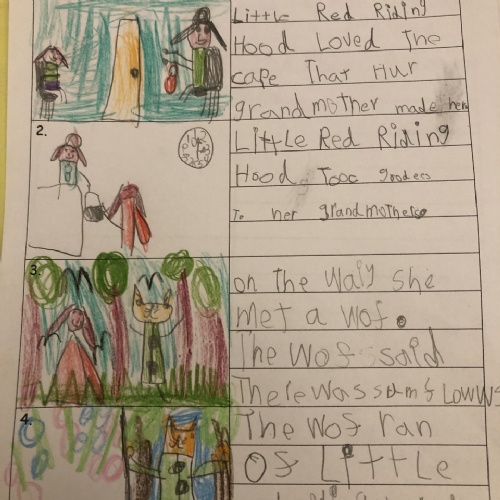 Little Red Riding
Hood Loved The
cape That Hur
grandmother made her
2.
Little Red Riding
Hood Tooc goodees
To her grandmothers
3.
on the waiy she
met a wof.
The wof said
There was sum flowws
4.
The wof ran
Of Little